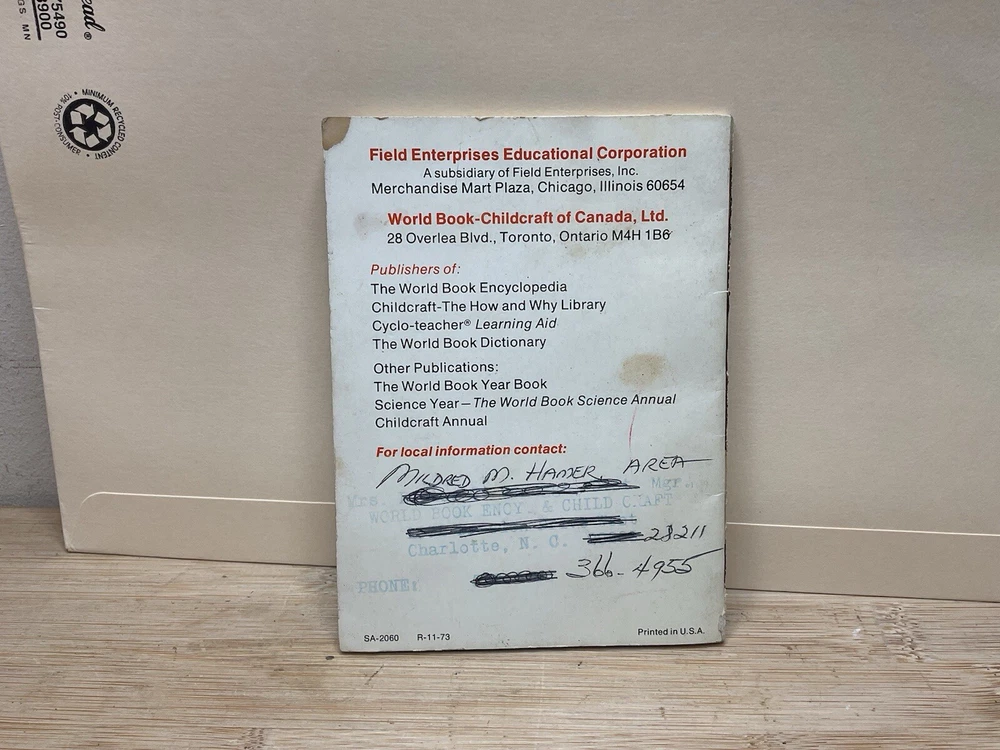 ead®
75490
3900
GS MN
MINIMUM RECYCLED CONTENT • 10% POST-CONSUMER •
Field Enterprises Educational Corporation
A subsidiary of Field Enterprises, Inc.
Merchandise Mart Plaza, Chicago, Illinois 60654
World Book-Childcraft of Canada, Ltd.
28 Overlea Blvd., Toronto, Ontario M4H 1B6
Publishers of:
The World Book Encyclopedia
Childcraft-The How and Why Library
Cyclo-teacher® Learning Aid
The World Book Dictionary
Other Publications:
The World Book Year Book
Science Year—The World Book Science Annual
Childcraft Annual
For local information contact:
MILDRED M. HAMER, AREA
Mrs. Mgr.
WORLD BOOK ENCY. & CHILD CRAFT
Charlotte, N. C. 28211
PHONE: 366-4955
SA-2060 R-11-73 Printed in U.S.A.